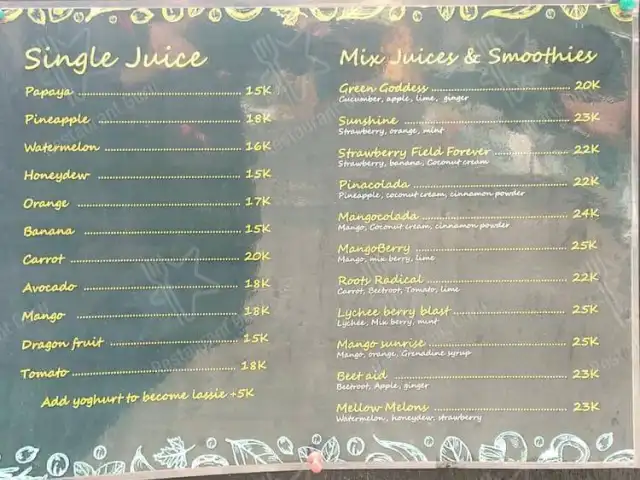 Single Juice
Papaya 15K
Pineapple 18K
Watermelon 16K
Honeydew 15K
Orange 17K
Banana 15K
Carrot 20K
Avocado 18K
Mango 18K
Dragon fruit 15K
Tomato 18K
Add yoghurt to become lassie +5K
Mix Juices & Smoothies
Green Goddess 20K
Cucumber, apple, lime, ginger
Sunshine 23K
Strawberry, orange, mint
Strawberry Field Forever 22K
Strawberry, banana, Coconut cream
Pinacolada 22K
Pineapple, coconut cream, cinnamon powder
Mangocolada 24K
Mango, Coconut cream, cinnamon powder
MangoBerry 25K
Mango, mix berry, lime
Roots Radical 22K
Carrot, Beetroot, Tomato, lime
Lychee berry blast 25K
Lychee, Mix berry, mint
Mango sunrise 25K
Mango, orange, Grenadine syrup
Beet aid 23K
Beetroot, Apple, ginger
Mellow Melons 23K
Watermelon, honeydew, strawberry